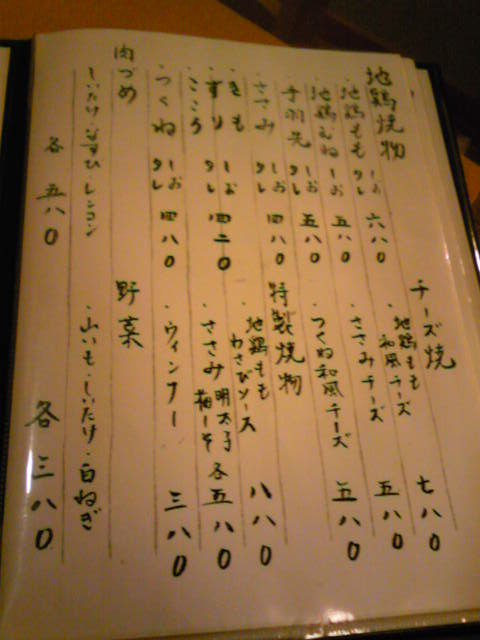 地鶏焼物
・地鶏もも しお タレ 六八〇
・地鶏むね しお タレ 五八〇
・手羽先 しお タレ 五八〇
・ささみ しお タレ 四八〇
・きも しお タレ
・すり しお タレ 四二〇
・こころ
・つくね しお タレ 四八〇
肉づめ
・しいたけ・なすび・レンコン
各 五八〇
チーズ焼
・地鶏もも 和風チーズ 七八〇
・ささみチーズ 五八〇
・つくね和風チーズ 五八〇
特製焼物
・地鶏もも わさびソース 八八〇
・ささみ 明太子 梅しそ 各五八〇
・ウィンナー 三八〇
野菜
・山いも・しいたけ・白ねぎ
各 三八〇